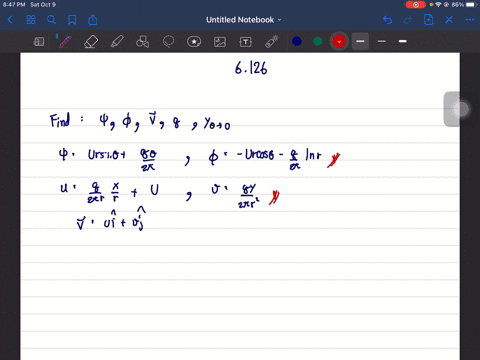 8:47 PM Sat Oct 9
86%
Untitled Notebook
6.126
Find : ψ, ϕ, V⃗, q, yθ→0
ψ = Ur sinθ + qθ/2π , ϕ = -Ur cosθ - q/2π ln r
u = q/2πr x/r + U , v = qy/2πr²
V⃗ = uî + vĵ